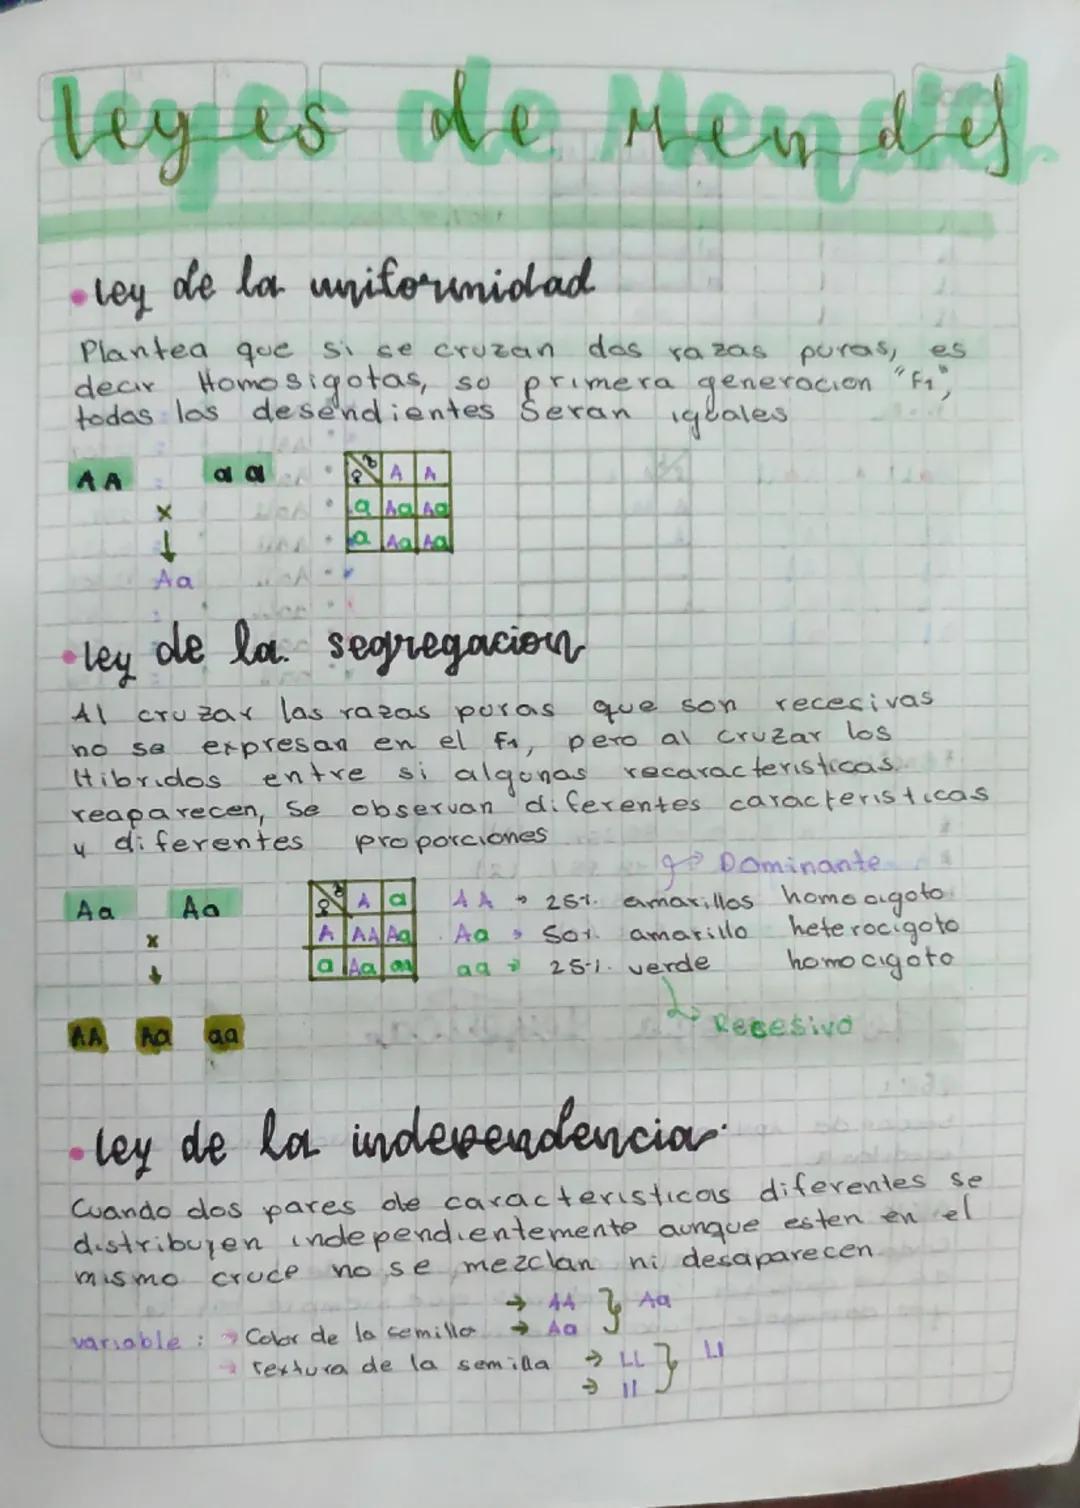 Leyes de Mendel
• Ley de la uniformidad
Plantea que si se cruzan dos razas puras, es
decir Homosigotas, su primera generacion "F1",
todas los desendientes Seran iguales
AA aa
x
↓
Aa
♀ ♂ A A
a Aa Aa
a Aa Aa
• Ley de la segregacion
Al cruzar las razas puras que son rececivas
no se expresan en el F1, pero al cruzar los
Hibridos entre si algunas recaracteristicas
reaparecen, Se observan diferentes caracteristicas
y diferentes proporciones
Aa Aa
x
↓
AA Aa aa
♀ ♂ A a
A AA Aa
a Aa aa
→ Dominante
AA → 25% amarillos homocigoto
Aa → 50% amarillo heterocigoto
aa → 25% verde homocigoto
→ Recesivo
• Ley de la independencia
Cuando dos pares de caracteristicas diferentes se
distribuyen independientemente aunque esten en el
mismo cruce no se mezclan ni desaparecen
→ AA } Aa
variable : → Color de la semilla → Aa
→ Textura de la semilla → LL } Ll
→ ll